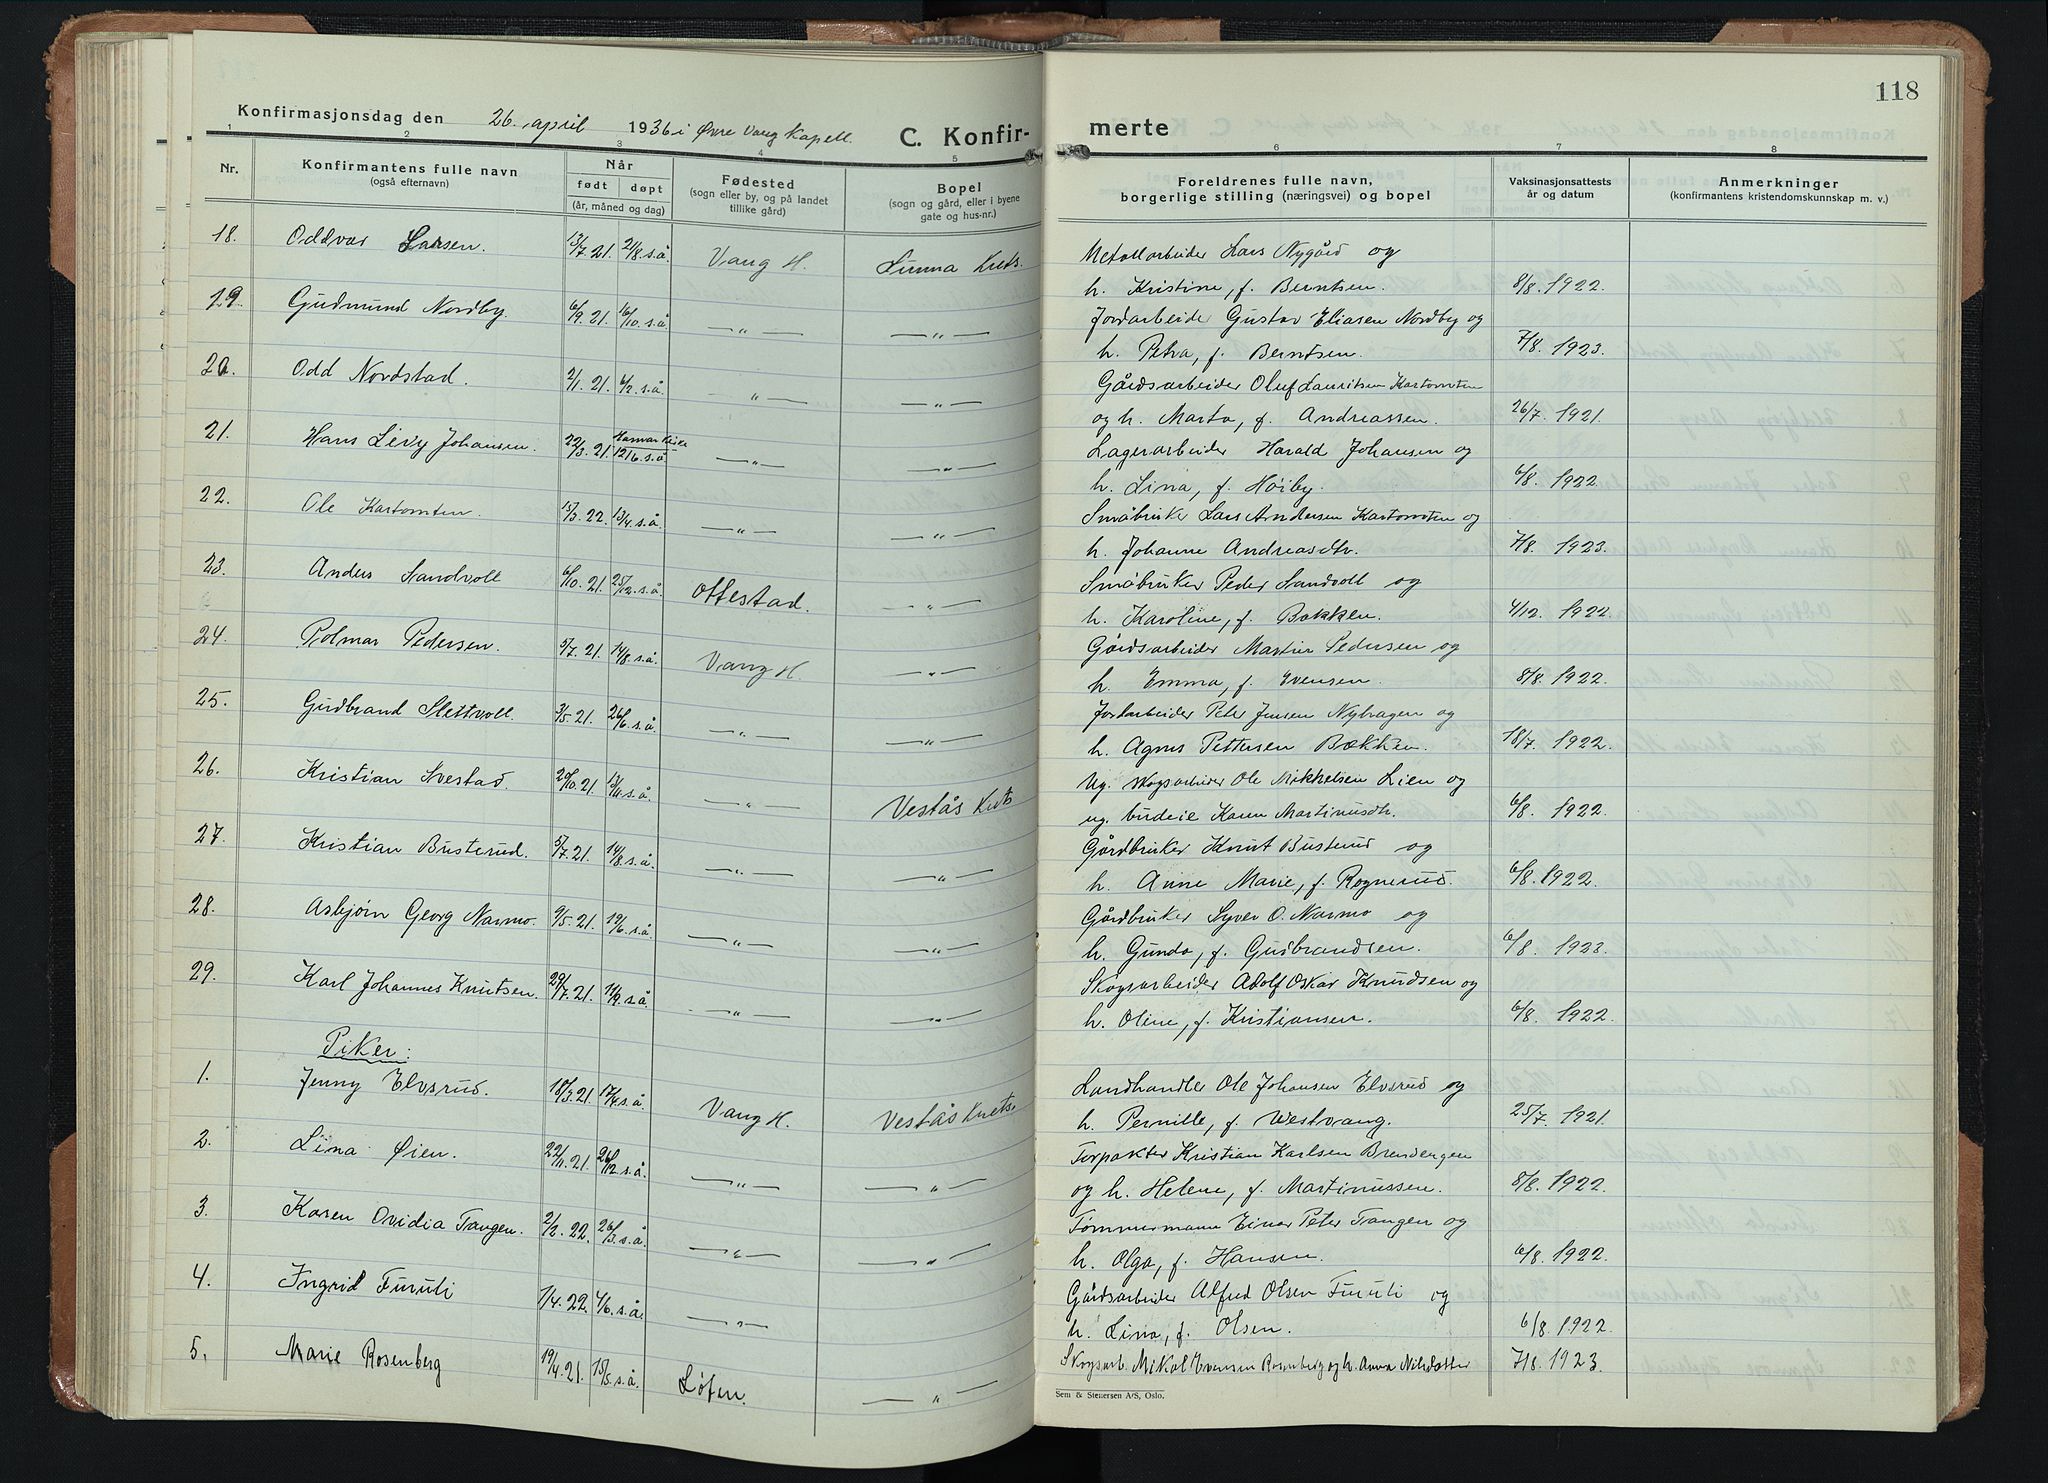 118
Konfirmasjonsdag den 26. april 1936 i Øvre Vang Kapell.
C. Konfir-
merte
1 2 3 4 5 6 7 8
Nr.
Konfirmantens fulle navn
(også efternavn)
Når
født døpt
(år, måned og dag)
Fødested
(sogn eller by, og på landet
tillike gård)
Bopel
(sogn og gård, eller i byene
gate og hus-nr.)
Foreldrenes fulle navn,
borgerlige stilling (næringsvei) og bopel
Vaksinasjonsattests
år og datum
Anmerkninger
(konfirmantens kristendomskunnskap m. v.)
18. Oddvar Larsen. 13/7.21. 21/8.s.å. Vang H. Linna Krets. Metallarbeider Lars Nygård og
h. Kristine, f. Berntsen. 8/8.1922.
19. Gudmund Nordby. 6/9.21. 16/10.s.å. —〃— —〃— Jordarbeider Gustav Eliasen Nordby og
h. Petra, f. Berntsen. 7/8.1923.
20. Odd Nordstad. 2/1.21. 6/2.s.å. —〃— —〃— Gårdsarbeider Oluf Lauritsen Kartomten
og h. Marta, f. Andreassen. 26/7.1921.
21. Hans Levy Johansen. 22/3.21. Hamar Kirke 12/6.s.å. —〃— —〃— Lagerarbeider Harald Johansen og
h. Lina, f. Høiby. 6/8.1922.
22. Ole Kartomten. 15/3.22. 13/4.s.å. —〃— —〃— Småbruker Lars Andersen Kartomten og
h. Johanne Andreasdtr. 7/8.1923.
23. Anders Sandvoll 6/10.21. 25/12.s.å. Ottestad. —〃— Småbruker Peder Sandvoll og
h. Karoline, f. Bakken. 4/12.1922.
24. Polmar Pedersen. 5/7.21. 14/8.s.å. Vang H. —〃— Gårdsarbeider Martin Pedersen og
h. Emma, f. Evensen. 8/8.1922.
25. Gudbrand Slettvoll. 3/5.21. 26/6.s.å. —〃— —〃— Jordarbeider Peter Jensen Nyhagen og
h. Agnes Pettersen Bækken. 18/7.1922.
26. Kristian Svestad. 20/10.21. 13/11.s.å. —〃— VeståS Krets Ug. skogsarbeider Ole Mikkelsen Lien og
ug. budeie Karen Martinusdtr. 6/8.1922.
27. Kristian Busterud. 5/7.21. 14/8.s.å. —〃— —〃— Gårdbruker Knut Busterud og
h. Anne Marie, f. Rognerud. 6/8.1922.
28. Asbjørn Georg Narmo. 9/5.21. 19/6.s.å. —〃— —〃— Gårdbruker Syver O. Narmo og
h. Gunda, f. Gudbrandsen. 6/8.1923.
29. Karl Johannes Knutsen. 29/7.21. 11/9.s.å. —〃— —〃— Skogsarbeider Adolf Oskar Knudsen og
h. Oline, f. Kristiansen. 6/8.1922.
Piker:
1. Jenny Elvsrud. 18/3.21. 17/4.s.å. Vang H. Veståskrets. Landhandler Ole Johansen Elvsrud og
h. Pernille, f. Westvang. 25/7.1921.
2. Lina Øien. 22/11.21. 26/12.s.å. —〃— —〃— Forpakter Kristian Karlsen Brendengen
og h. Helene, f. Martinussen. 8/8.1922.
3. Karen Ovidia Tangen. 2/2.22. 26/3.s.å. —〃— —〃— Tømmermann Einar Peter Tangen og
h. Olga, f. Hansen. 6/8.1922.
4. Ingrid Furuli 1/4.22. 4/6.s.å. —〃— Gårdsarbeider Alfred Olsen Furuli og
h. Lina, f. Olsen. 6/8.1922.
5. Marie Rosenberg 19/4.21. 15/8.s.å. Løten. —〃— Skogsarb. Mikal Evensen Rosenberg og h. Anna Nilsdatter 7/8.1923.
Sem & Stenersen A/S, Oslo.